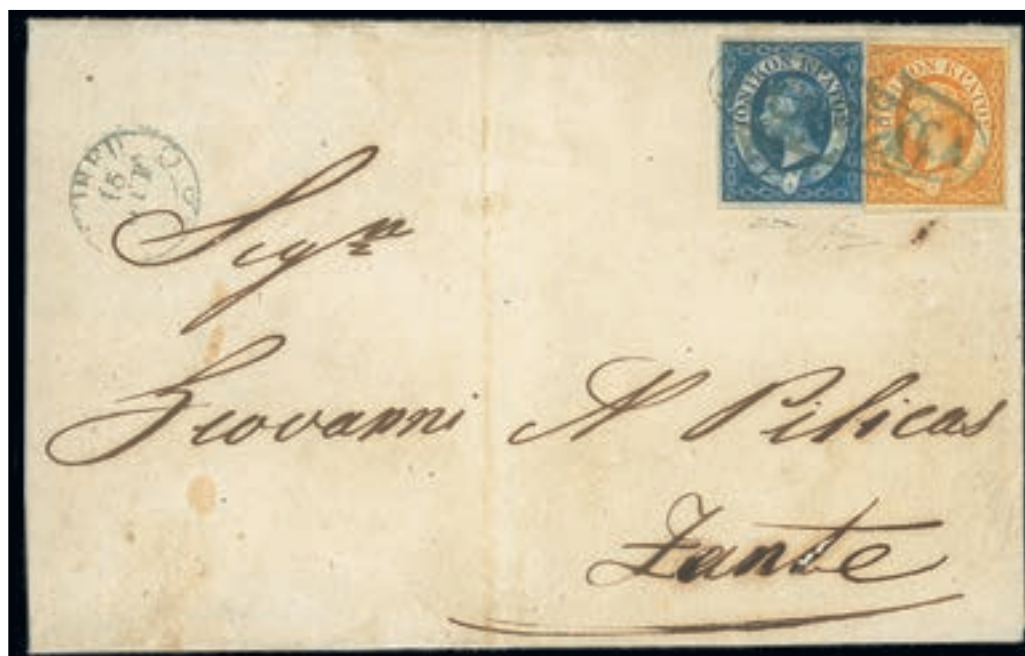 ΙΟΝΙΚΟΝ ΚΡΑΤΟΣ
ΙΟΝΙΚΟΝ ΚΡΑΤΟΣ
15
Sigʳ
Giovanni N Pilicas
Zante